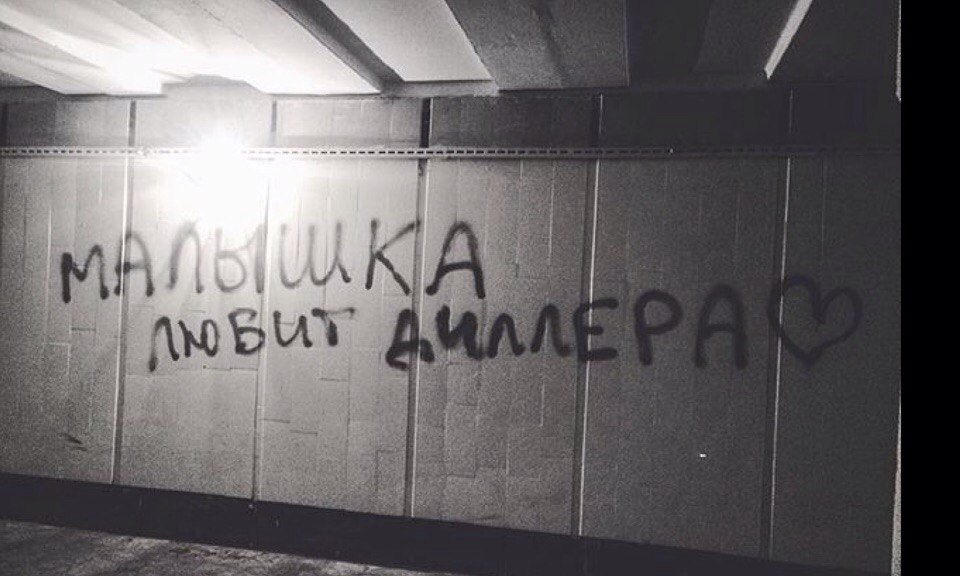 МАЛЫШКА
ЛЮБИТ ДИЛЛЕРА♡